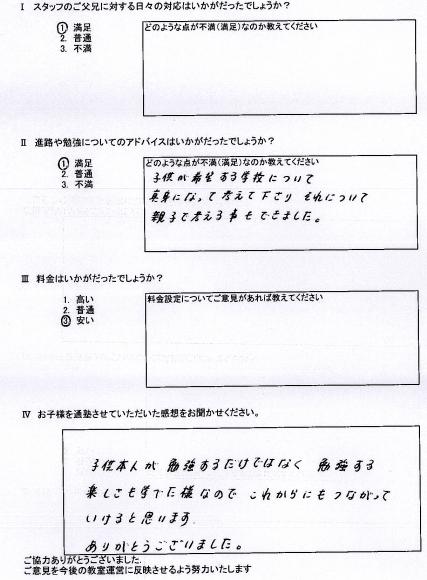 Ⅰ スタッフのご父兄に対する日々の対応はいかがだったでしょうか？
① 満足
2. 普通
3. 不満
どのような点が不満(満足)なのか教えてください
Ⅱ 進路や勉強についてのアドバイスはいかがだったでしょうか？
① 満足
2. 普通
3. 不満
どのような点が不満(満足)なのか教えてください
子供が希望する学校について
真身になって考えて下さり それについて
親子で考える事もできました。
Ⅲ 料金はいかがだったでしょうか？
1. 高い
2. 普通
③ 安い
料金設定についてご意見があれば教えてください
Ⅳ お子様を通塾させていただいた感想をお聞かせください。
子供本人が 勉強するだけではなく 勉強する
楽しさも学べた様なので これからにもつながって
いけると思います
ありがとうございました。
ご協力ありがとうございました。
ご意見を今後の教室運営に反映させるよう努力いたします